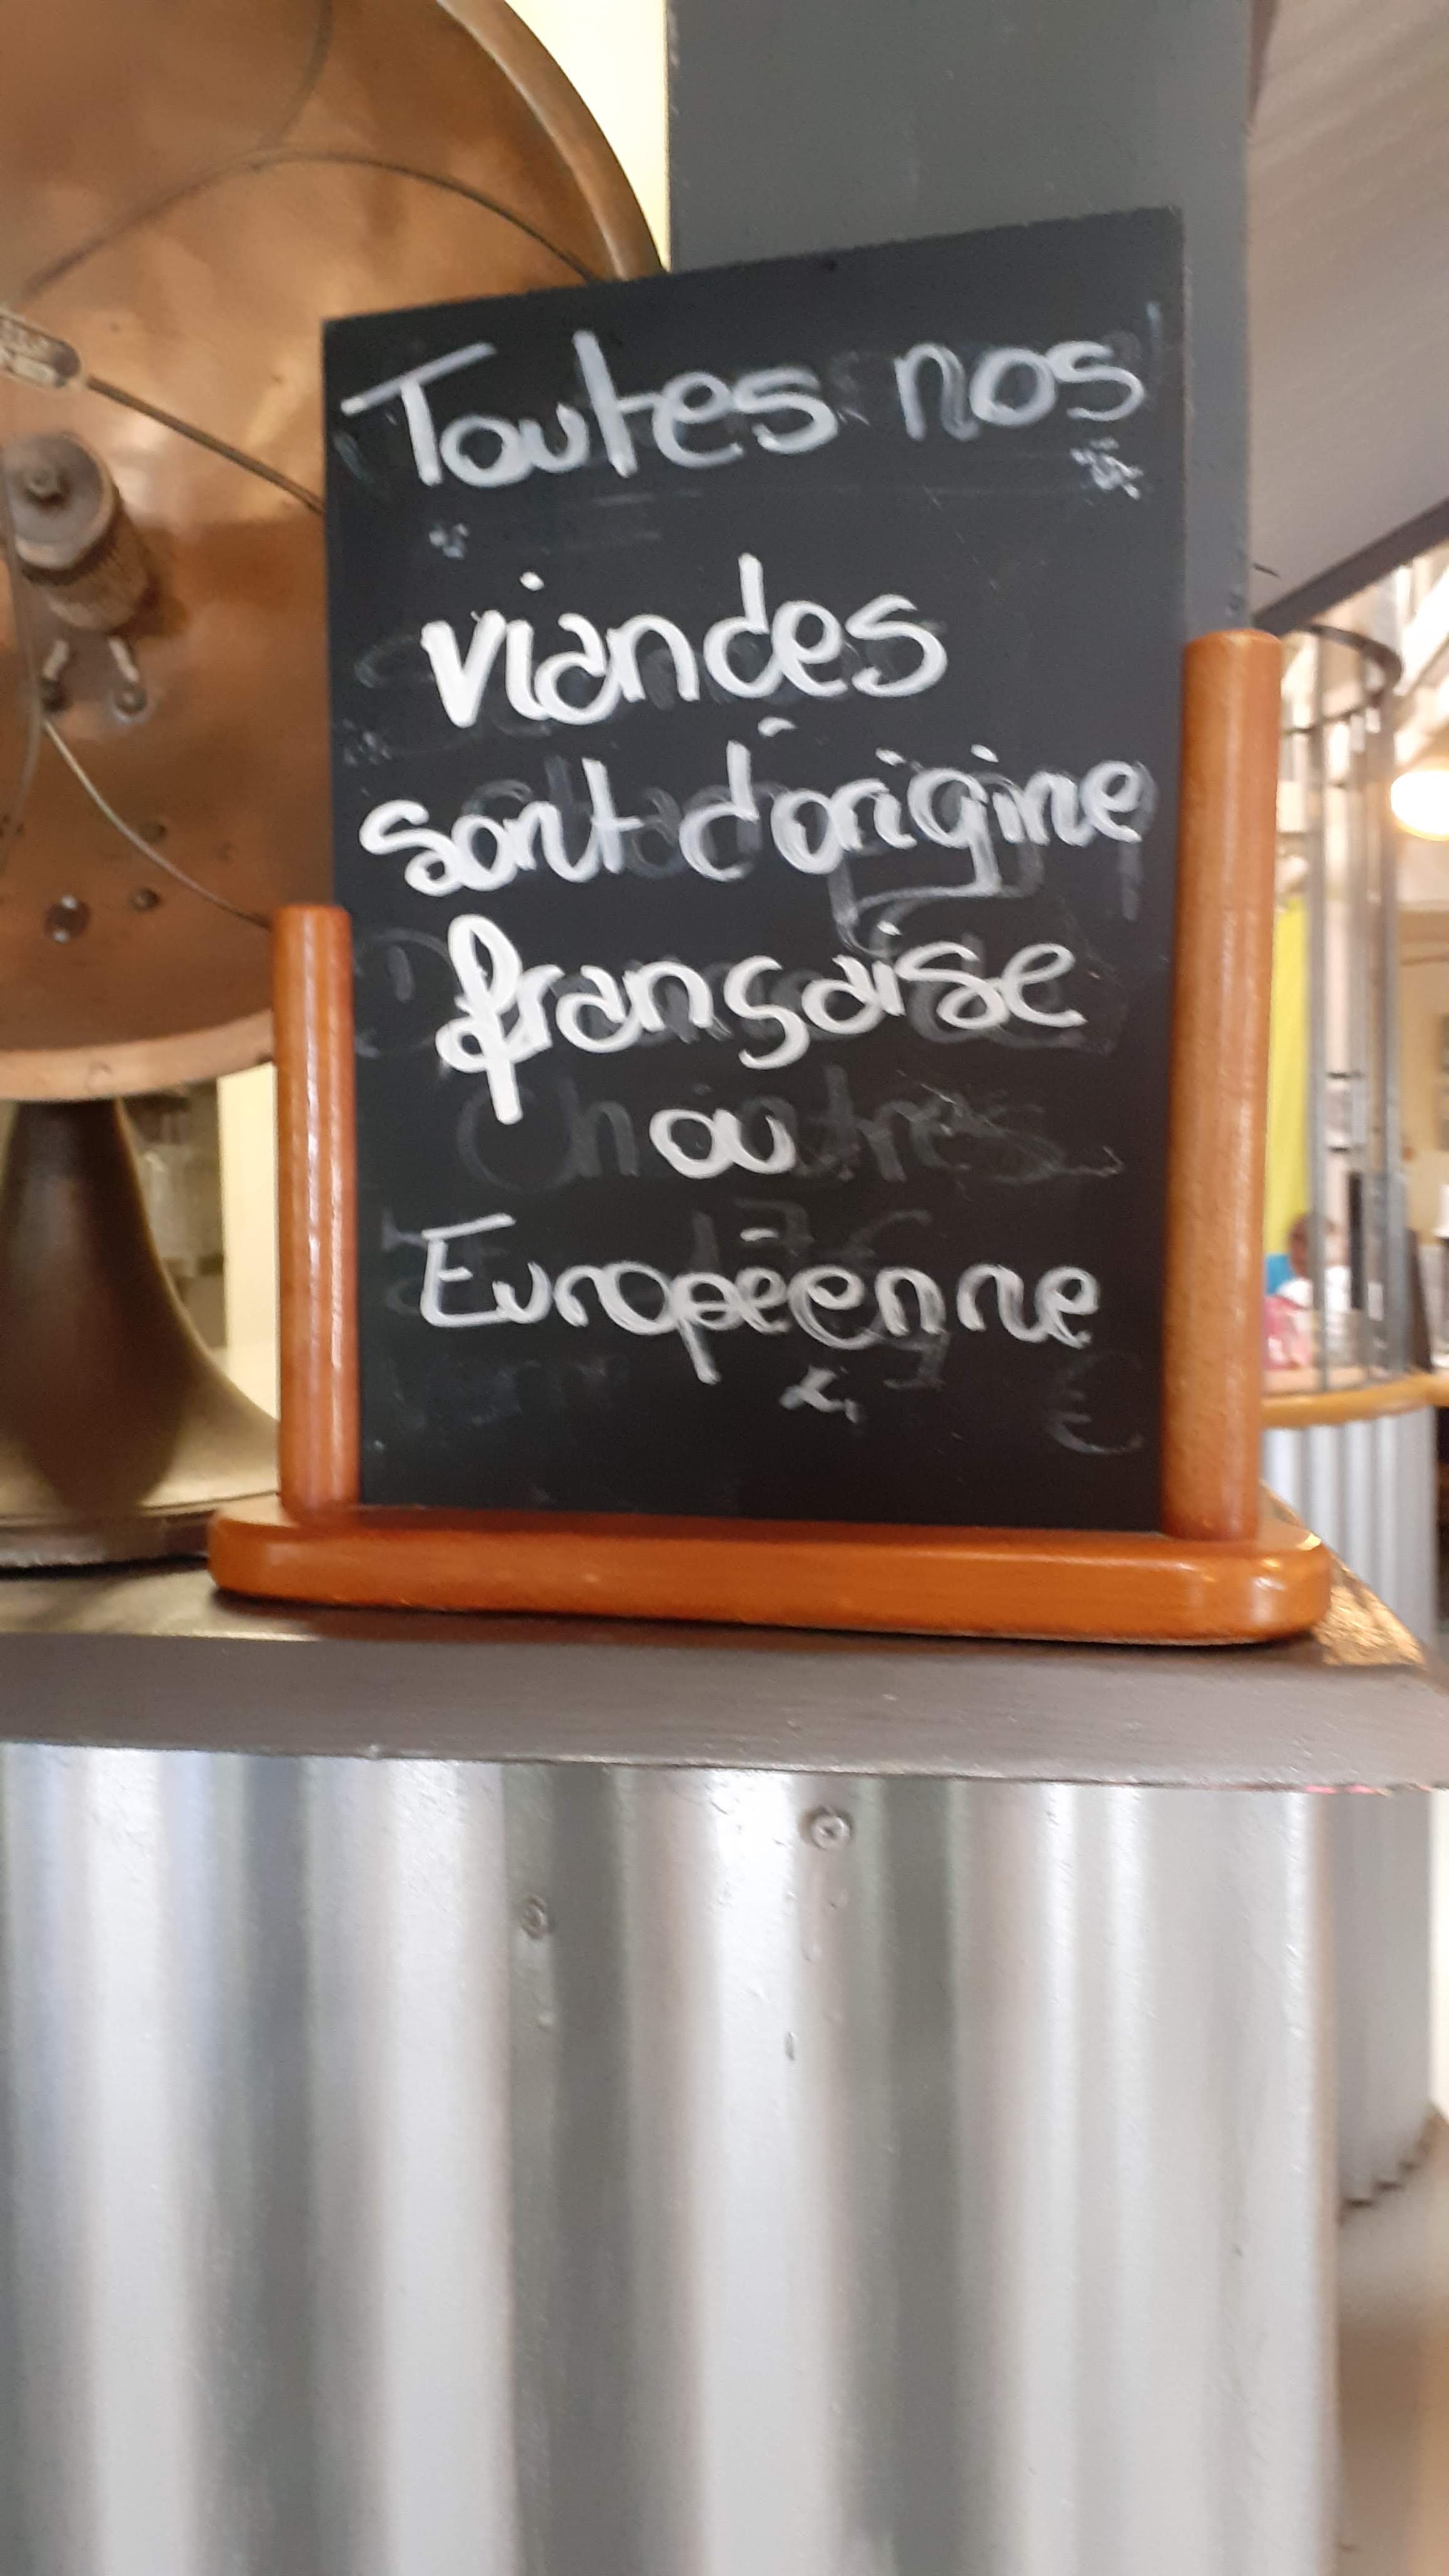 Toutes nos
viandes
sont d'origine
française
ou
Européenne